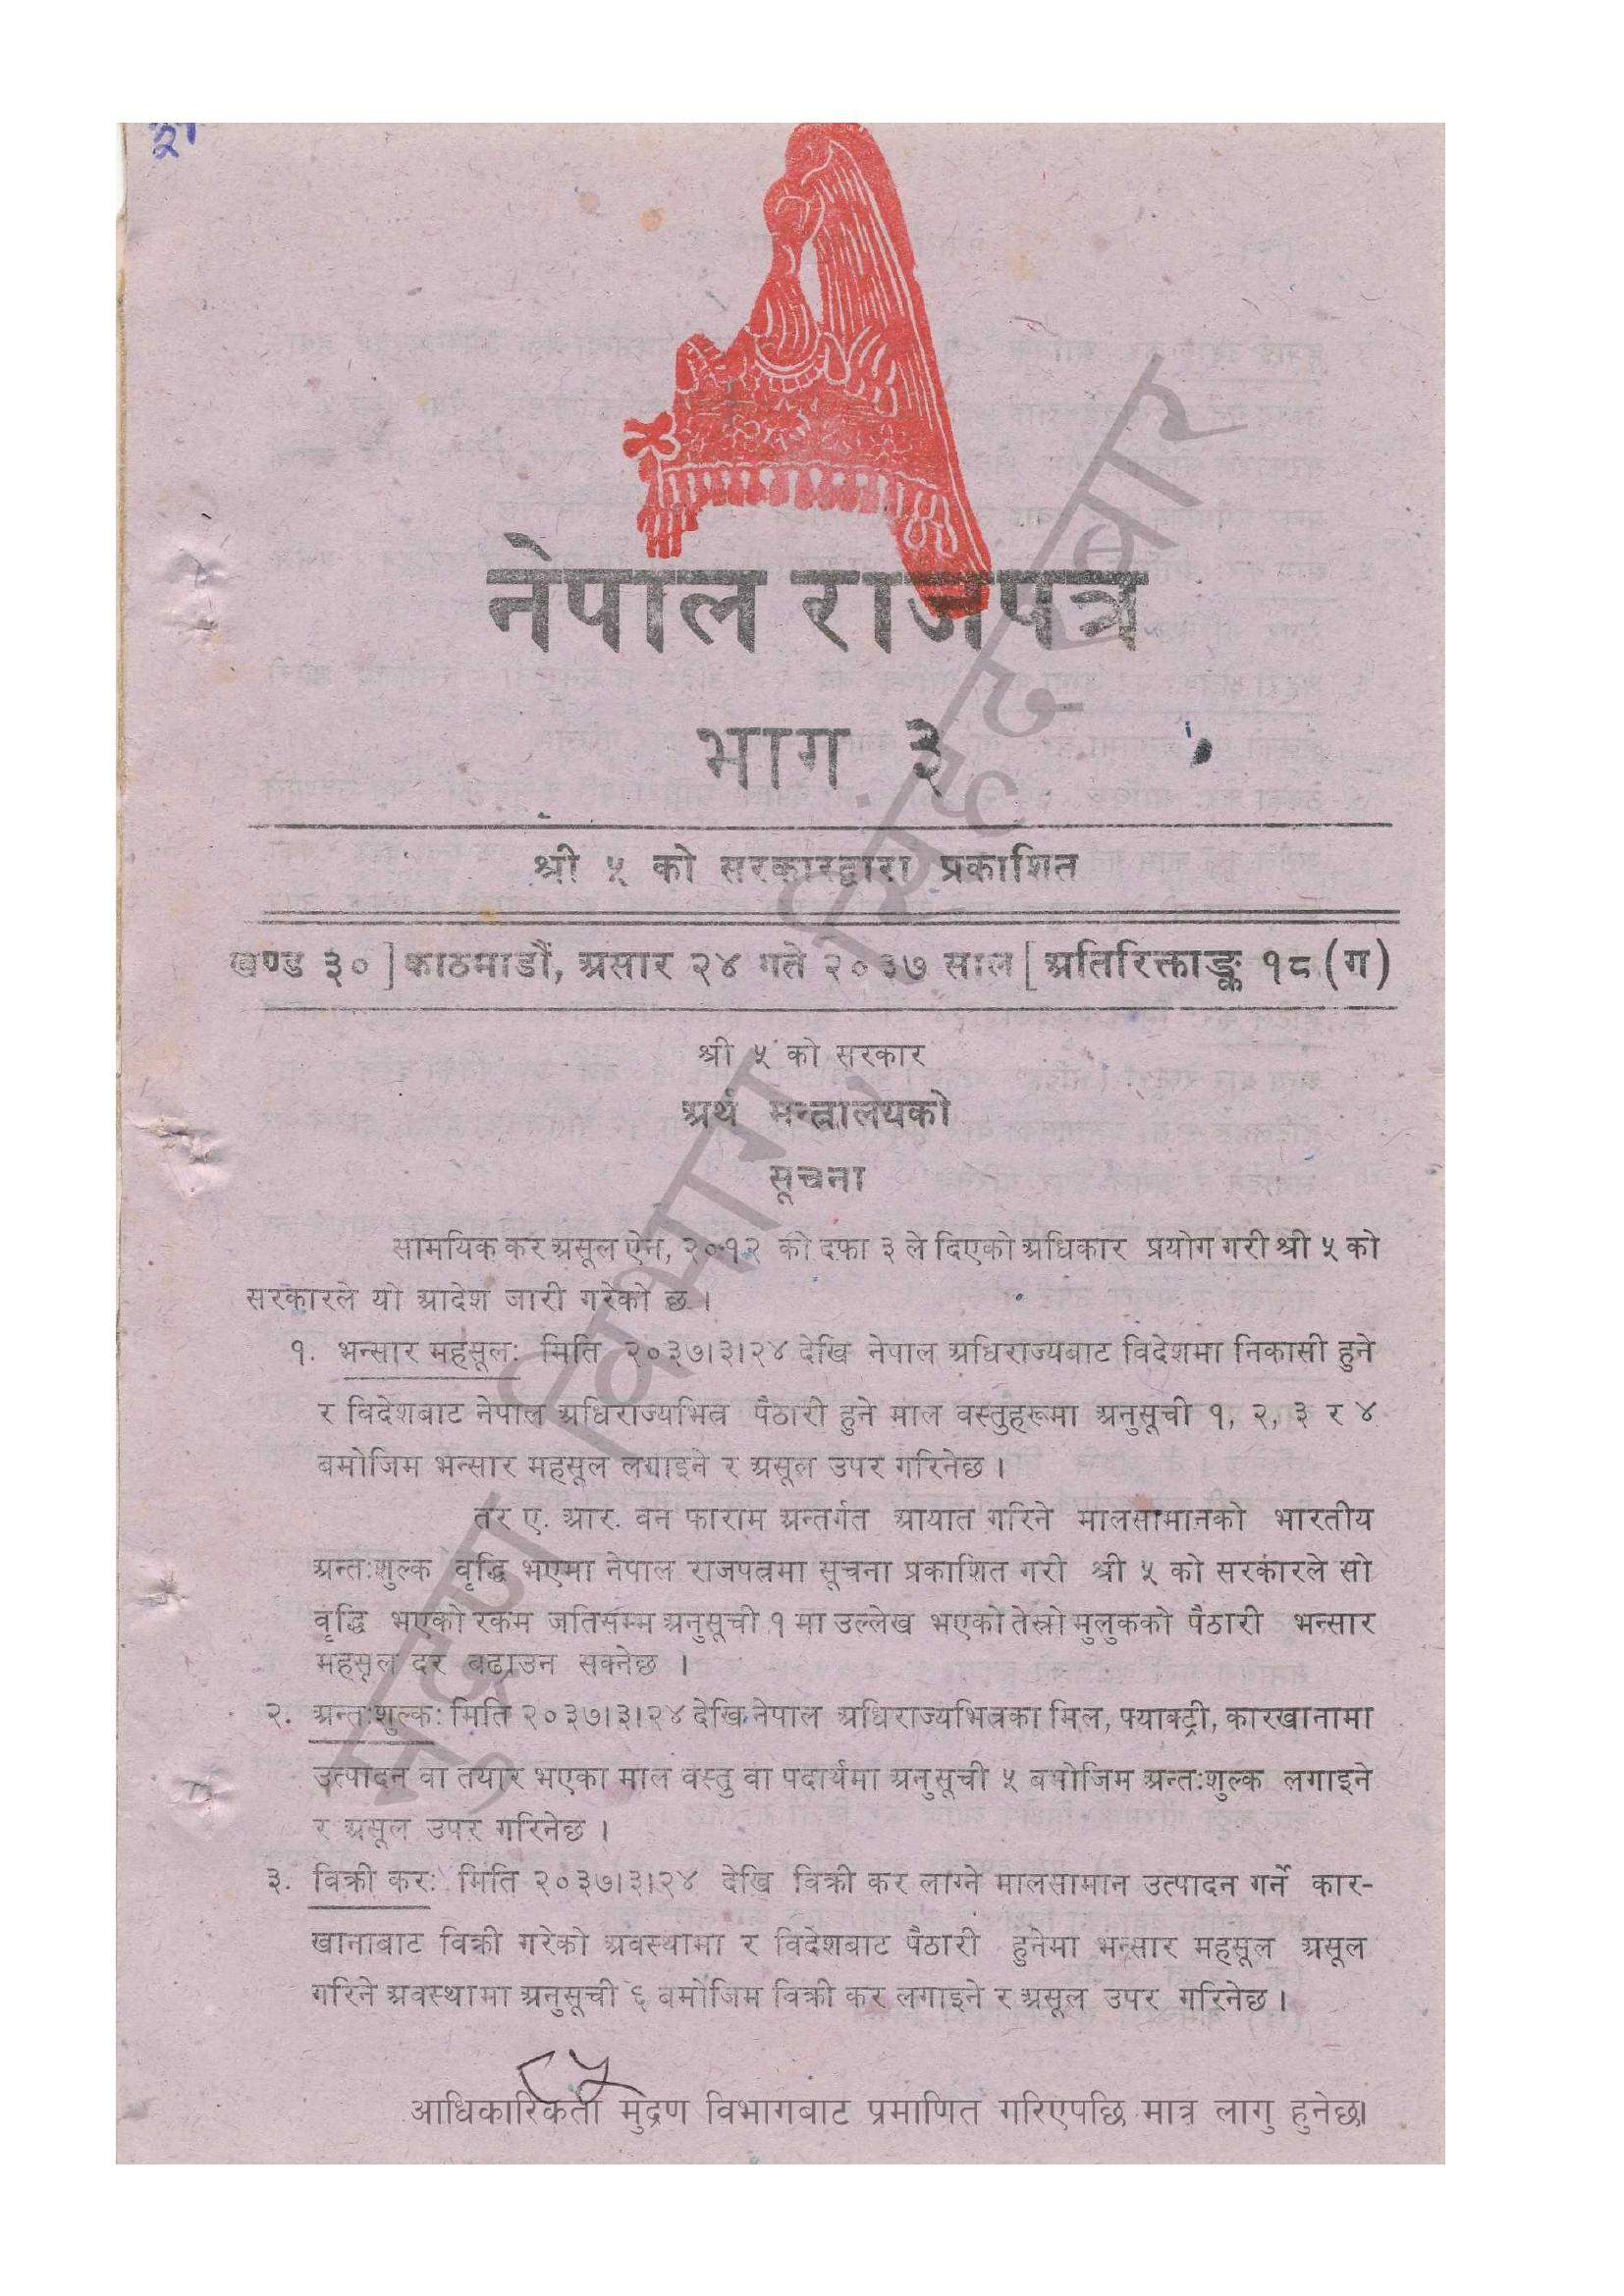 नेपाल राजपत्र
भाग ३
श्री ५ को सरकारद्वारा प्रकाशित
खण्ड ३० ] काठमाडौं, असार २४ गते २०३७ साल [ अतिरिक्ताङ्क १८ (ग)
श्री ५ को सरकार
अर्थ मन्त्रालयको
सूचना
सामयिक कर असूल ऐन, २०१२ को दफा ३ ले दिएको अधिकार प्रयोग गरी श्री ५ को
सरकारले यो आदेश जारी गरेको छ ।
१. भन्सार महसूल: मिति २०३७।३।२४ देखि नेपाल अधिराज्यबाट विदेशमा निकासी हुने
र विदेशबाट नेपाल अधिराज्यभित्र पैठारी हुने माल वस्तुहरूमा अनुसूची १, २, ३ र ४
बमोजिम भन्सार महसूल लगाइने र असूल उपर गरिनेछ ।
तर ए. आर. वन फाराम अन्तर्गत आयात गरिने मालसामानको भारतीय
अन्त:शुल्क वृद्धि भएमा नेपाल राजपत्रमा सूचना प्रकाशित गरी श्री ५ को सरकारले सो
वृद्धि भएको रकम जतिसम्म अनुसूची १ मा उल्लेख भएको तेस्रो मुलुकको पैठारी भन्सार
महसूल दर बढाउन सक्नेछ ।
२. अन्त:शुल्क: मिति २०३७।३।२४ देखि नेपाल अधिराज्यभित्रका मिल, फ्याक्ट्री, कारखानामा
उत्पादन वा तयार भएका माल वस्तु वा पदार्थमा अनुसूची ५ बमोजिम अन्त:शुल्क लगाइने
र असूल उपर गरिनेछ ।
३. विक्री कर: मिति २०३७।३।२४ देखि विक्री कर लाग्ने मालसामान उत्पादन गर्ने कार-
खानाबाट विक्री गरेको अवस्थामा र विदेशबाट पैठारी हुनेमा भन्सार महसूल असूल
गरिने अवस्थामा अनुसूची ६ बमोजिम विक्री कर लगाइने र असूल उपर गरिनेछ ।
८५
आधिकारिकता मुद्रण विभागबाट प्रमाणित गरिएपछि मात्र लागु हुनेछ।
मुद्रण विभाग, सिंहदरबार